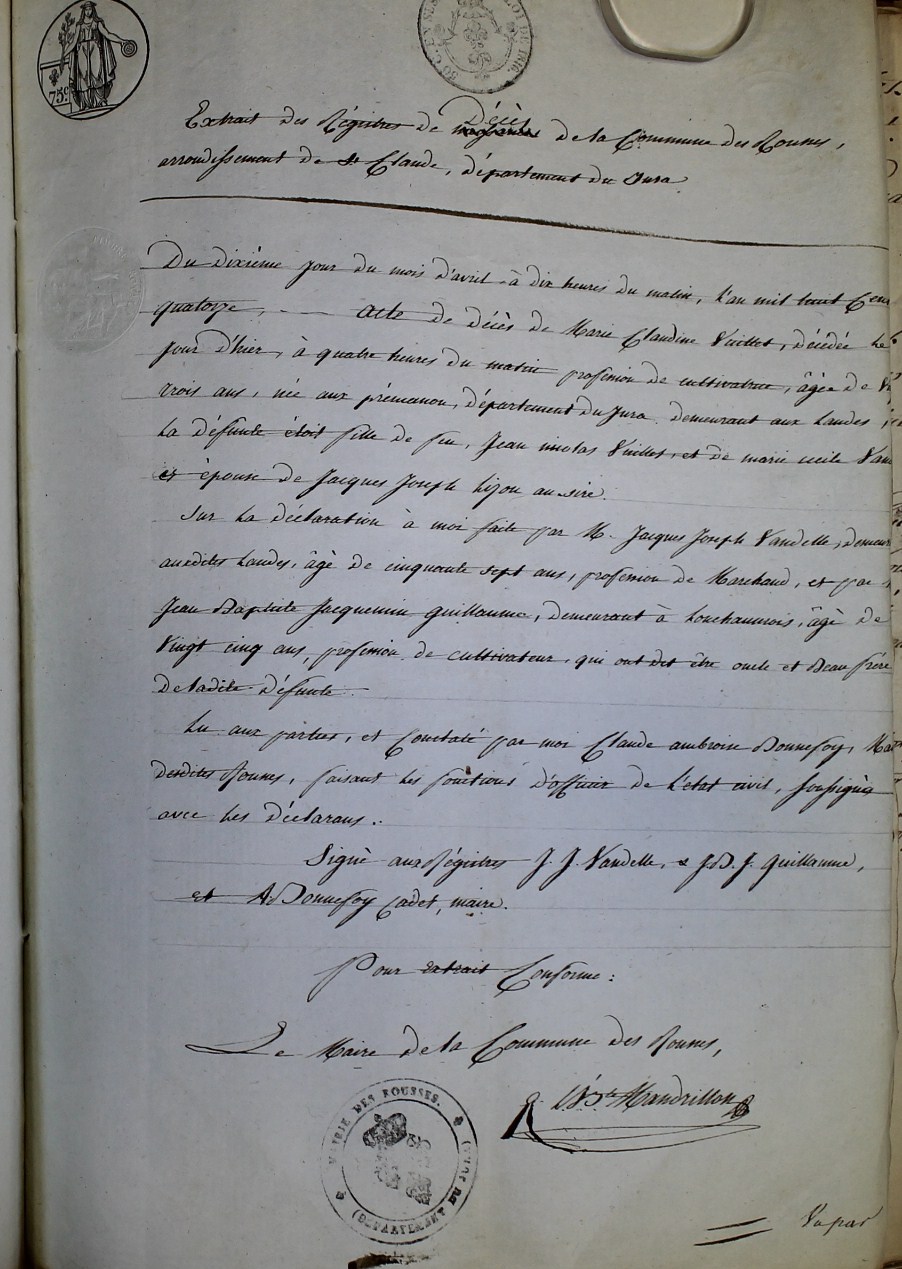 75c.
Extrait des Régistres de Décès de la Commune des Rousses,
arrondissement de St Claude, département du Jura
Du dixième jour du mois d'avril à dix heures du matin, l'an mil huit Cent
quatorze, acte de décès de Marie Claudine Vuillet, décédée le
jour d'hier, à quatre heures du matin profession de cultivatrice, âgée de
trois ans, née aux prémanon, département du Jura demeurant aux Landes,
la défunte étoit fille de feu, Jean nicolas Vuillet, et de marie cecile
et épouse de Jacques Joseph lizon au sire.
Sur la déclaration à moi faite par M. Jacques Joseph Vandelle, demeur
auxdites Landes, âgé de cinquante sept ans, profession de Marchand, et par
Jean Baptiste Jacquemin Guillaume, demeurant à Lonchaumois, âgé de
Vingt cinq ans, profession de cultivateur, qui ont dit être oncle et Beau frère
de ladite défunte.
Lu aux parties, et Constaté par moi Claude ambroise Bonnefoy, Mai
desdites Rousses, faisant les fonctions d'officier de l'état civil, soussigné
avec les déclarans.
Signé aux Régistres J. J. Vandelle, & J. B. J. Guillaume,
et A Bonnefoy Cadet, maire.
Pour extrait Conforme:
Le Maire de la Commune des Rousses,
Bte Mandrillon
MAIRIE DES ROUSSES.
(DEPARTEMENT DU JURA)
Vu par